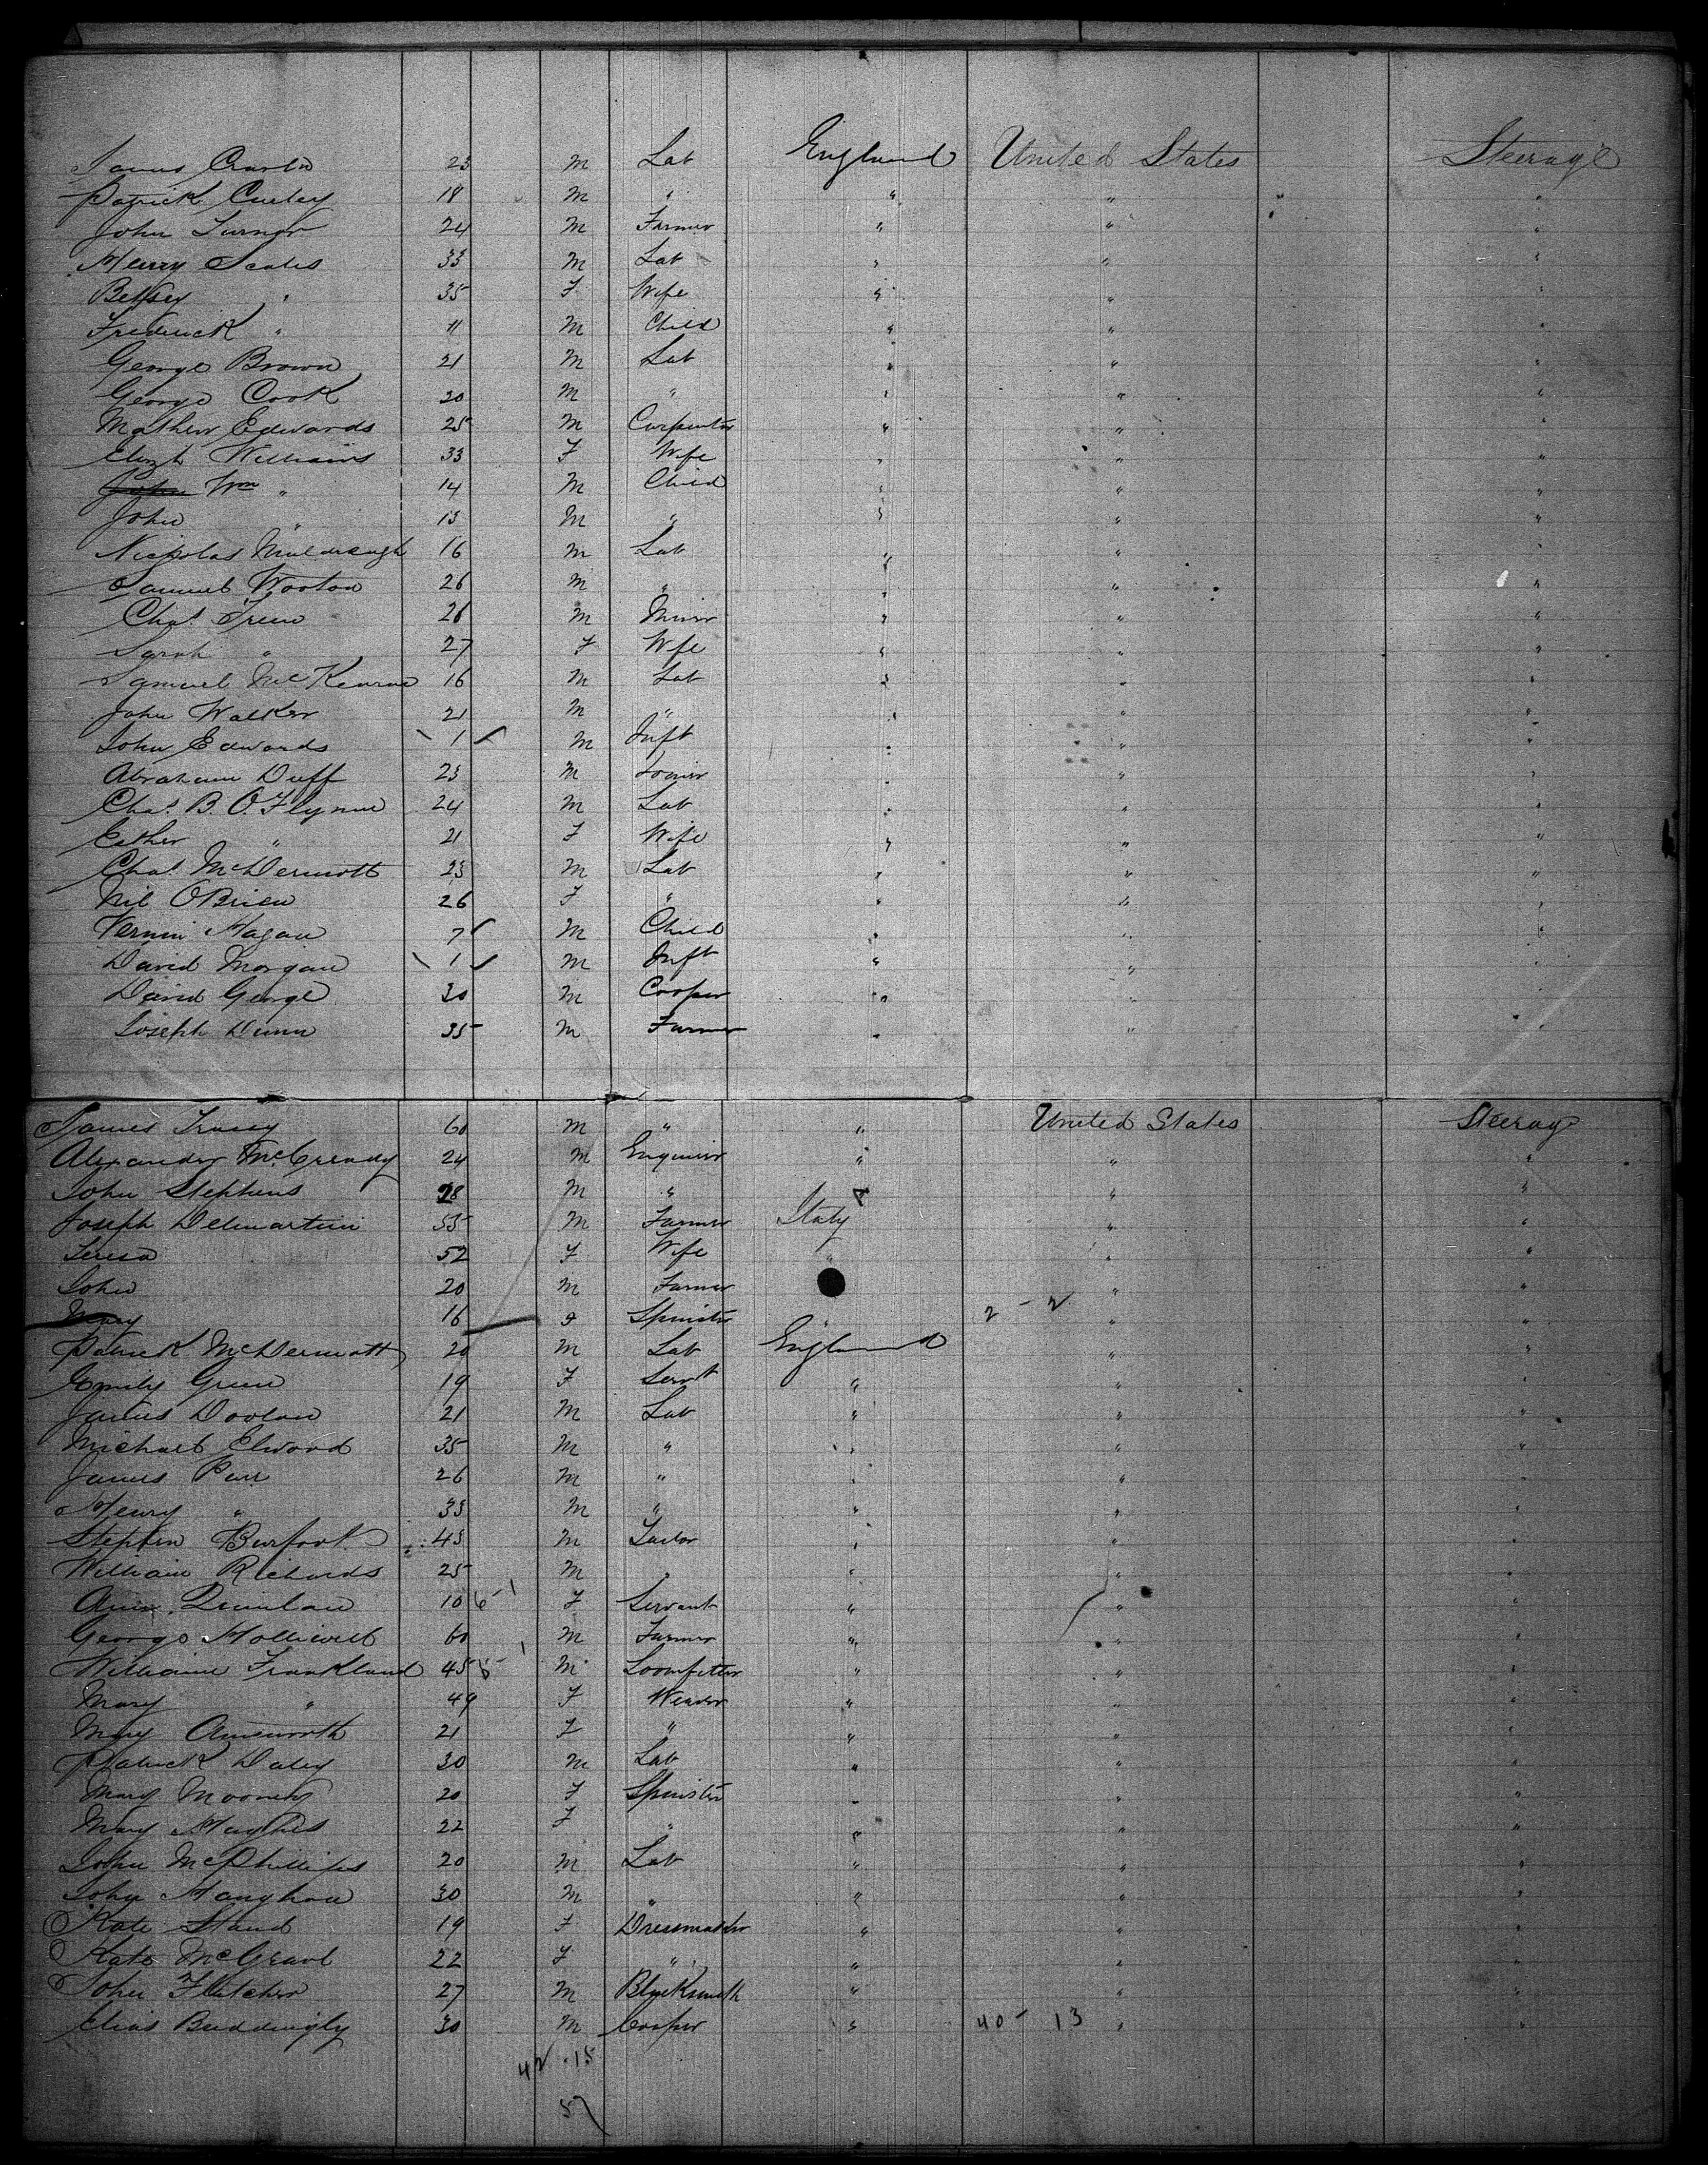 James 23 M Lab England United States Steerage
Patrick Curley 18 M " " " "
John Turner 24 M Farmer " " "
Henry Scales 33 M Lab " " "
Betsey " 35 F Wife " " "
Frederick " 11 M Child " " "
George Brown 21 M Lab " " "
George Cook 20 M " " " "
Mathew Edwards 25 M Carpenter " " "
Elizh Williams 33 F Wife " " "
John Wm " 14 M Child " " "
John " 13 M " " " "
Nicholas Muldraugh 16 M Lab " " "
Samuel Wooton 26 M " " " "
Chas. 26 M Miner " " "
Sarah " 27 F Wife " " "
Samuel McKenna 16 M Lab " " "
John Walker 21 M " " " "
John Edwards 1 M Inft " " "
Abraham Duff 23 M Joiner " " "
Chas. B. O. Flynne 24 M Lab " " "
Esther " 21 F Wife " " "
Chas. McDermott 23 M Lab " " "
OBrien 26 F " " " "
Magan 7 M Child " " "
David Morgan 1 M Inft " " "
David George 30 M Cooper " " "
Joseph Dunn 35 M Farmer " " "
James Tracey 60 M " " United States Steerage
Alexander McCready 24 M Engineer " " "
John Stephens 28 M " " " "
Joseph Delmartini 55 M Farmer Italy " "
Teresa 52 F Wife " " "
John 20 M Farmer " "
Mary 16 F Spinster " 2 - 2 " "
Patrick McDermott 20 M Lab England " "
Emily Green 19 F Servt " " "
James Doolan 21 M Lab " " "
Michael Elwood 35 M " " " "
James Parr 26 M " " " "
Henry " 33 M " " " "
Stephen Burfoot 43 M Tailor " " "
William Richards 25 M " " " "
Ann Quinlan 10 F Servant " " "
George Holliwell 60 M Farmer " " "
William Frankland 45 M Loomfitter " " "
Mary " 49 F Weaver " " "
Mary Ainsworth 21 F " " " "
Patrick Daley 30 M Lab " " "
Mary Mooney 20 F Spinster " " "
Mary Hughes 22 F " " " "
John McPhillips 20 M Lab " " "
John Manghan 30 M " " " "
Kate 19 F Dressmaker " " "
Kate 22 F " " " "
John Fletcher 27 M Blacksmith " " "
Elias Baddingly 30 M Cooper " 40 - 13 " "
42 . 15
57